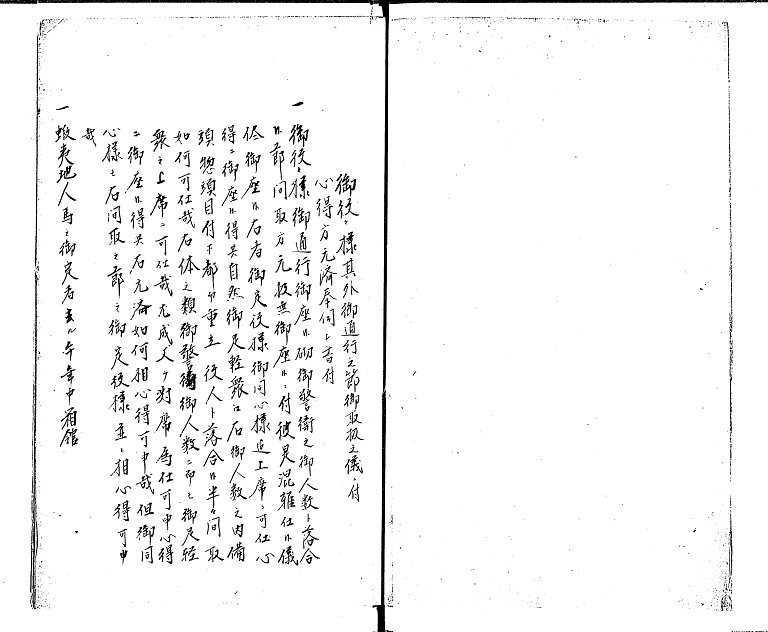 御役々様其外御通行之節御取扱之儀ニ付
心得方元済奉伺候書付
一御役々様御通行御座候砌御警衛之御人数と落合
候節間取方元扱無御座候ニ付彼是混雑仕候儀
御座候右者御定役様御同心様迄上席ニ可仕心
得ニ御座候得共自然御足軽衆江右御人数之内備
頭惣頭目付下都而重立役人と落合候半ヽ間取
如何可仕哉右体之類御警衛御人数ニ而も御足軽
衆之上席ニ可仕哉尤成丈ケ対席為仕可申心得
ニ御座候得共右元済如何相心得可申哉但御同
心様も右同取之節も御定役様並ニ相心得可申
哉
一蝦夷地人馬之御定者去ル午年中箱館